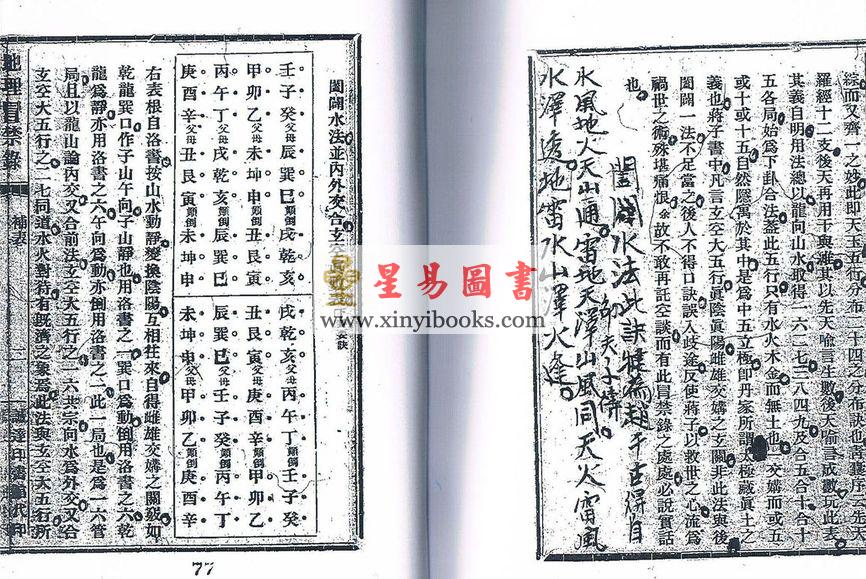 綜而又齊一之妙此即天玉五行分布二十四之分布訣也
羅經十二支後天再用干與維其以先天喻言生數後天喻言成數玩此表
其義自明用法總以龍向山水取得一六二七三八四九及合五合十合十
五各局始為下卦合法蓋此五行只有水火木金而無土也交媾而或五
或十或十五自然隱寓於其中是為中五立極即丹家所謂太極藏眞土之
義也將子書中凡言玄空大五行眞陰眞陽雌雄交媾之玄關非此法與後
闔闢一法不足當之後人不得口訣誤入歧途反使蔣子以救世之心流為
禍世之術殊堪痛恨余故不敢再託空談而有此冒禁錄之處處必說實話
也
闔闢水法此訣為超千古得自
師夫子傳
水風地火天山通雷地天澤山風同天火雷風
水澤逢地雷水山澤火逢
闔闢水法並內外交合玄
要訣
壬子癸父母辰巽巳顛倒戌乾亥
甲卯乙父母未坤申顛倒丑艮寅
丙午丁父母戌乾亥顛倒辰巽巳
庚酉辛父母丑艮寅顛倒未坤申
戌乾亥父母丙午丁顛倒壬子癸
丑艮寅父母庚酉辛顛倒甲卯乙
辰巽巳父母壬子癸顛倒丙午丁
未坤申父母甲卯乙顛倒庚酉辛
右表根自洛書按山水動靜變換陰陽互相往來自得雌雄交媾之關竅如
乾龍巽口作子山午向子山靜也用洛書之一巽口為動倒用洛書之六乾
龍為靜亦用洛書之六午向為動亦倒用洛書之一此一局也是為一六管
局且以龍山論內交又合前法玄空大五行之一六共宗向水為外交又合
玄空大五行之二七同道水火對待有既濟之象焉此法與玄空大五行所
地理冒禁錄
補表
77
星易圖書
www.xinyibooks.com